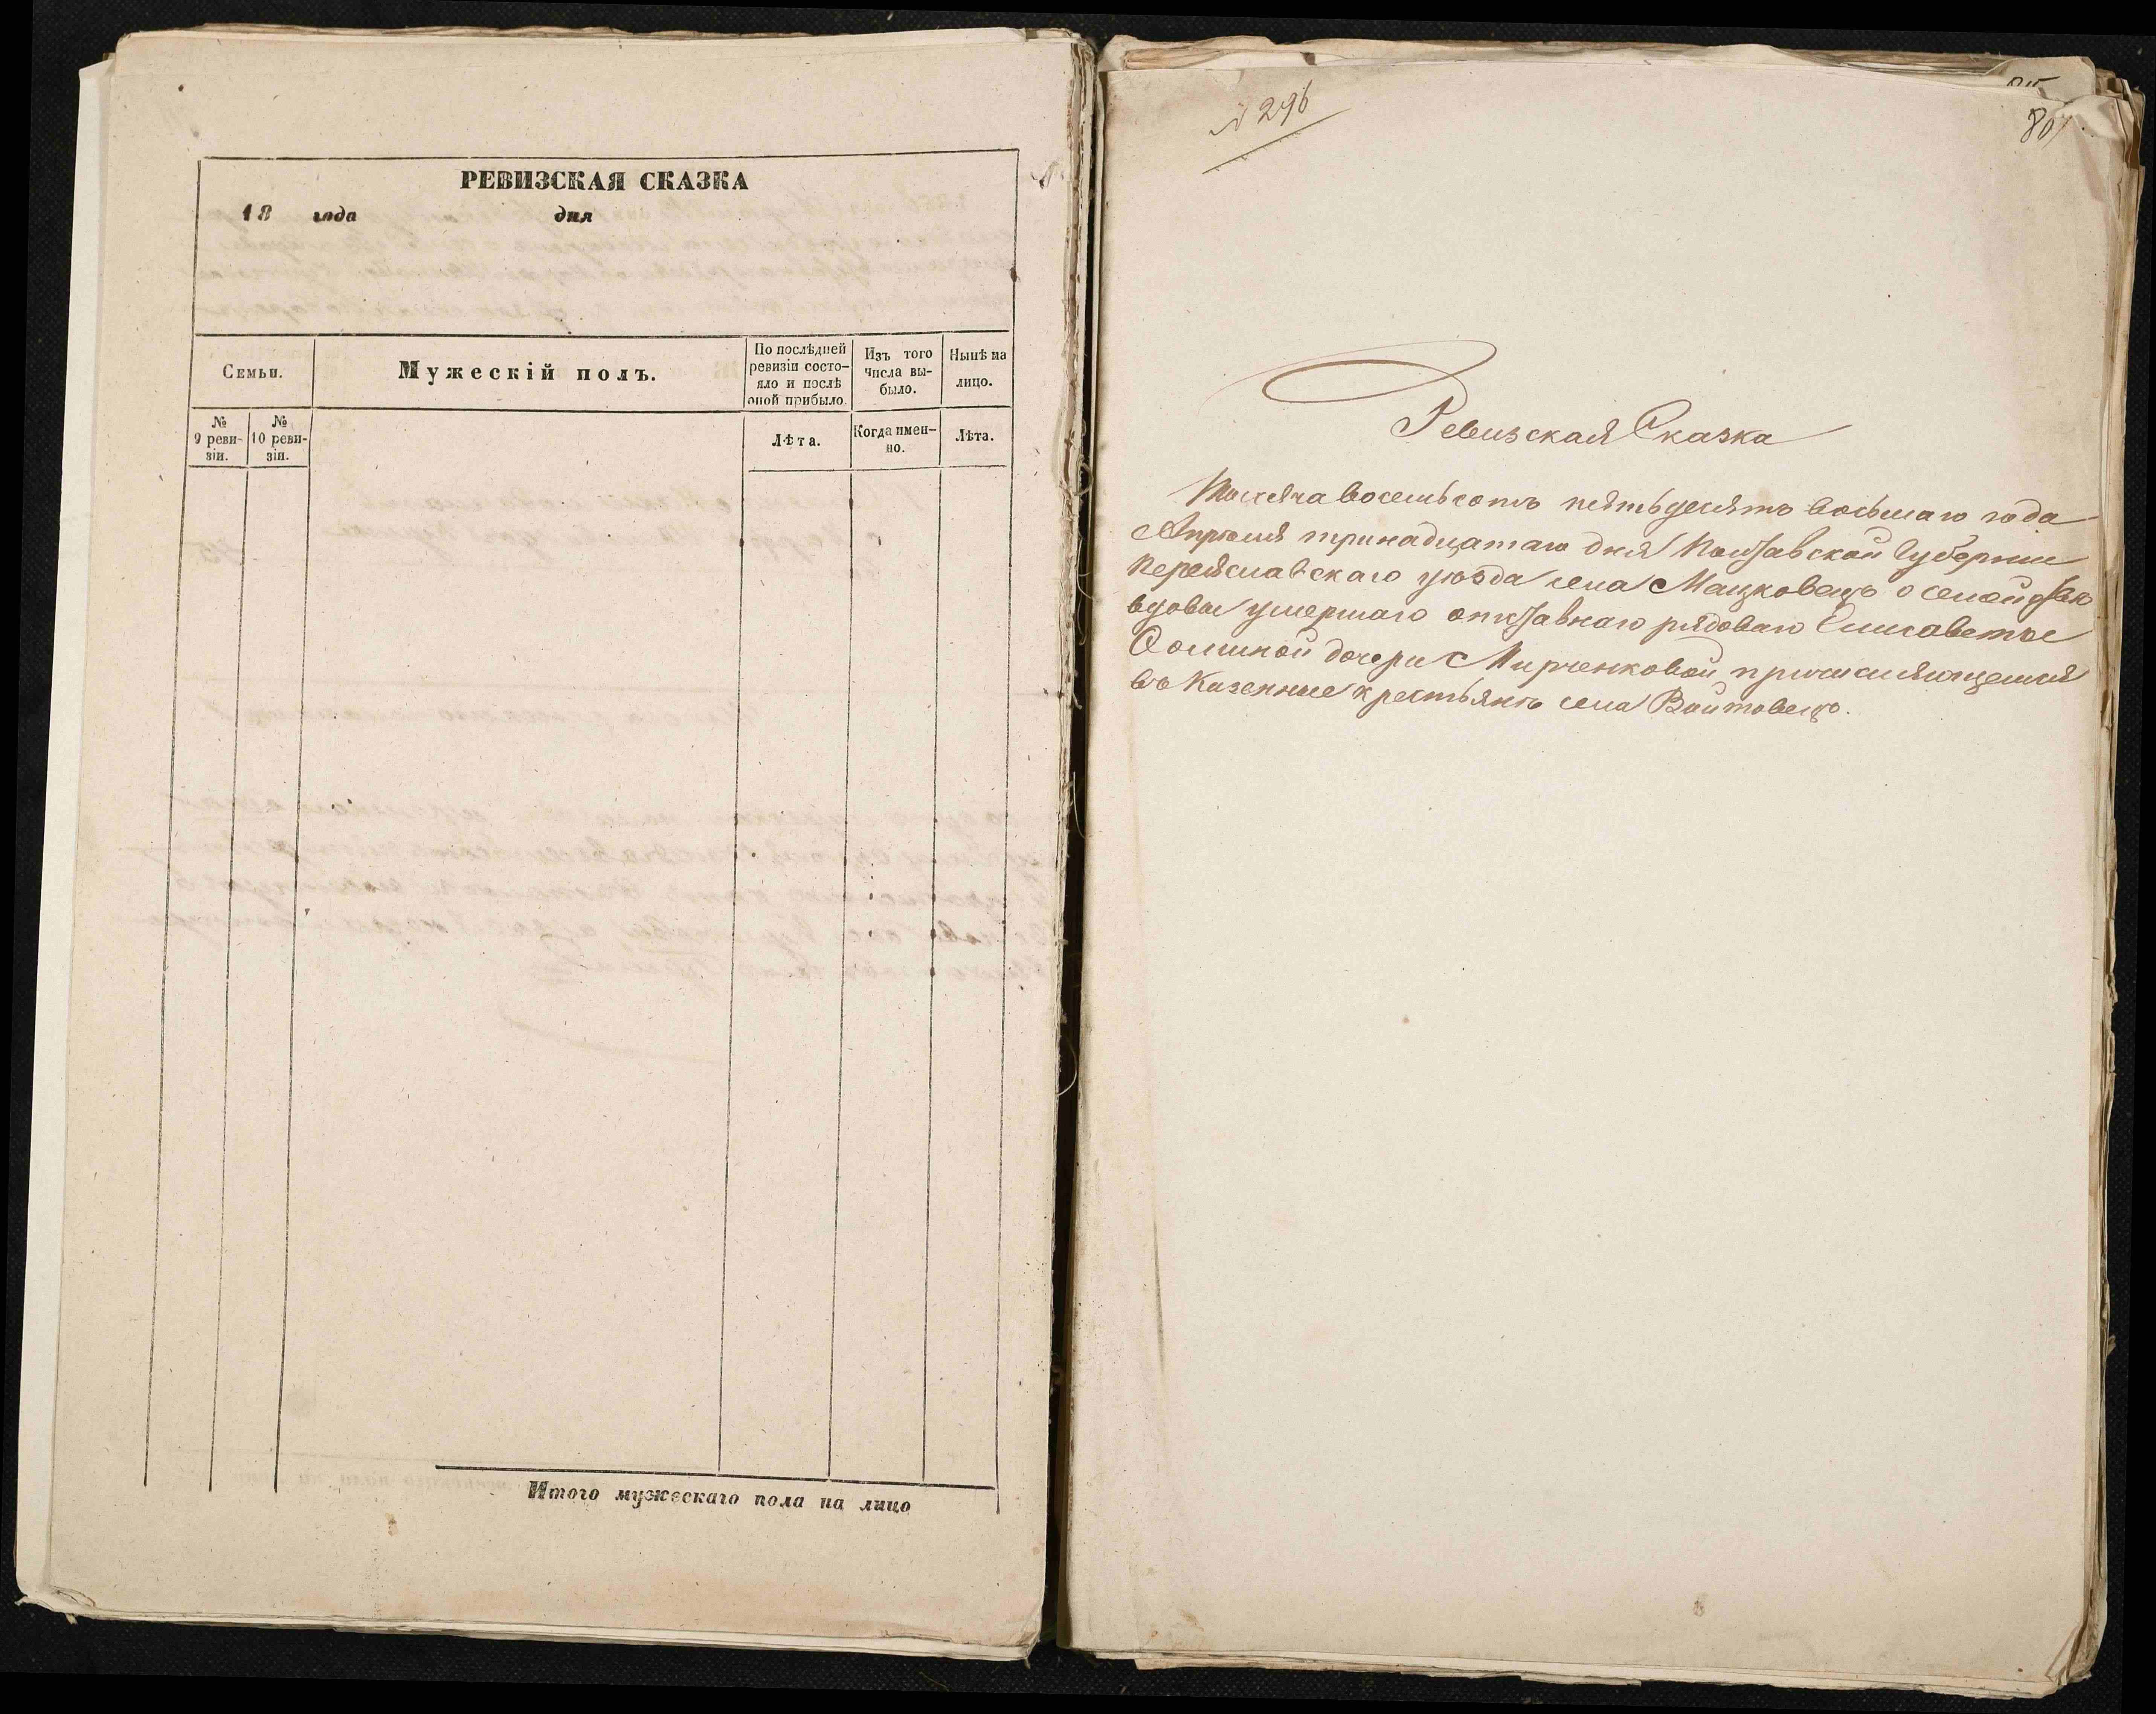 РЕВИЗСКАЯ СКАЗКА
18 года дня
Семьи.
Мужескій полъ.
По послѣдней ревизіи состо-яло и послѣ оной прибыло.
Изъ того числа вы-было.
Нынѣ на лицо.
№ 9 реви-зіи.
№ 10 реви-зіи.
Лѣта.
Когда имен-но.
Лѣта.
Итого мужескаго пола на лицо
№ 296
Ревизская Сказка
Тысяча восемьсотъ пятьдесятъ восьмаго года
Апрѣля тринадцатаго дня Полтавской Губерніи
Переяславскаго уѣзда села Мацковецъ о семействѣ
вдовы умершаго отставнаго рядоваго Елисаветы
Фоминой дочери Мирченковой причисляющемся
въ Казенные крестьянъ села Войтовецъ.